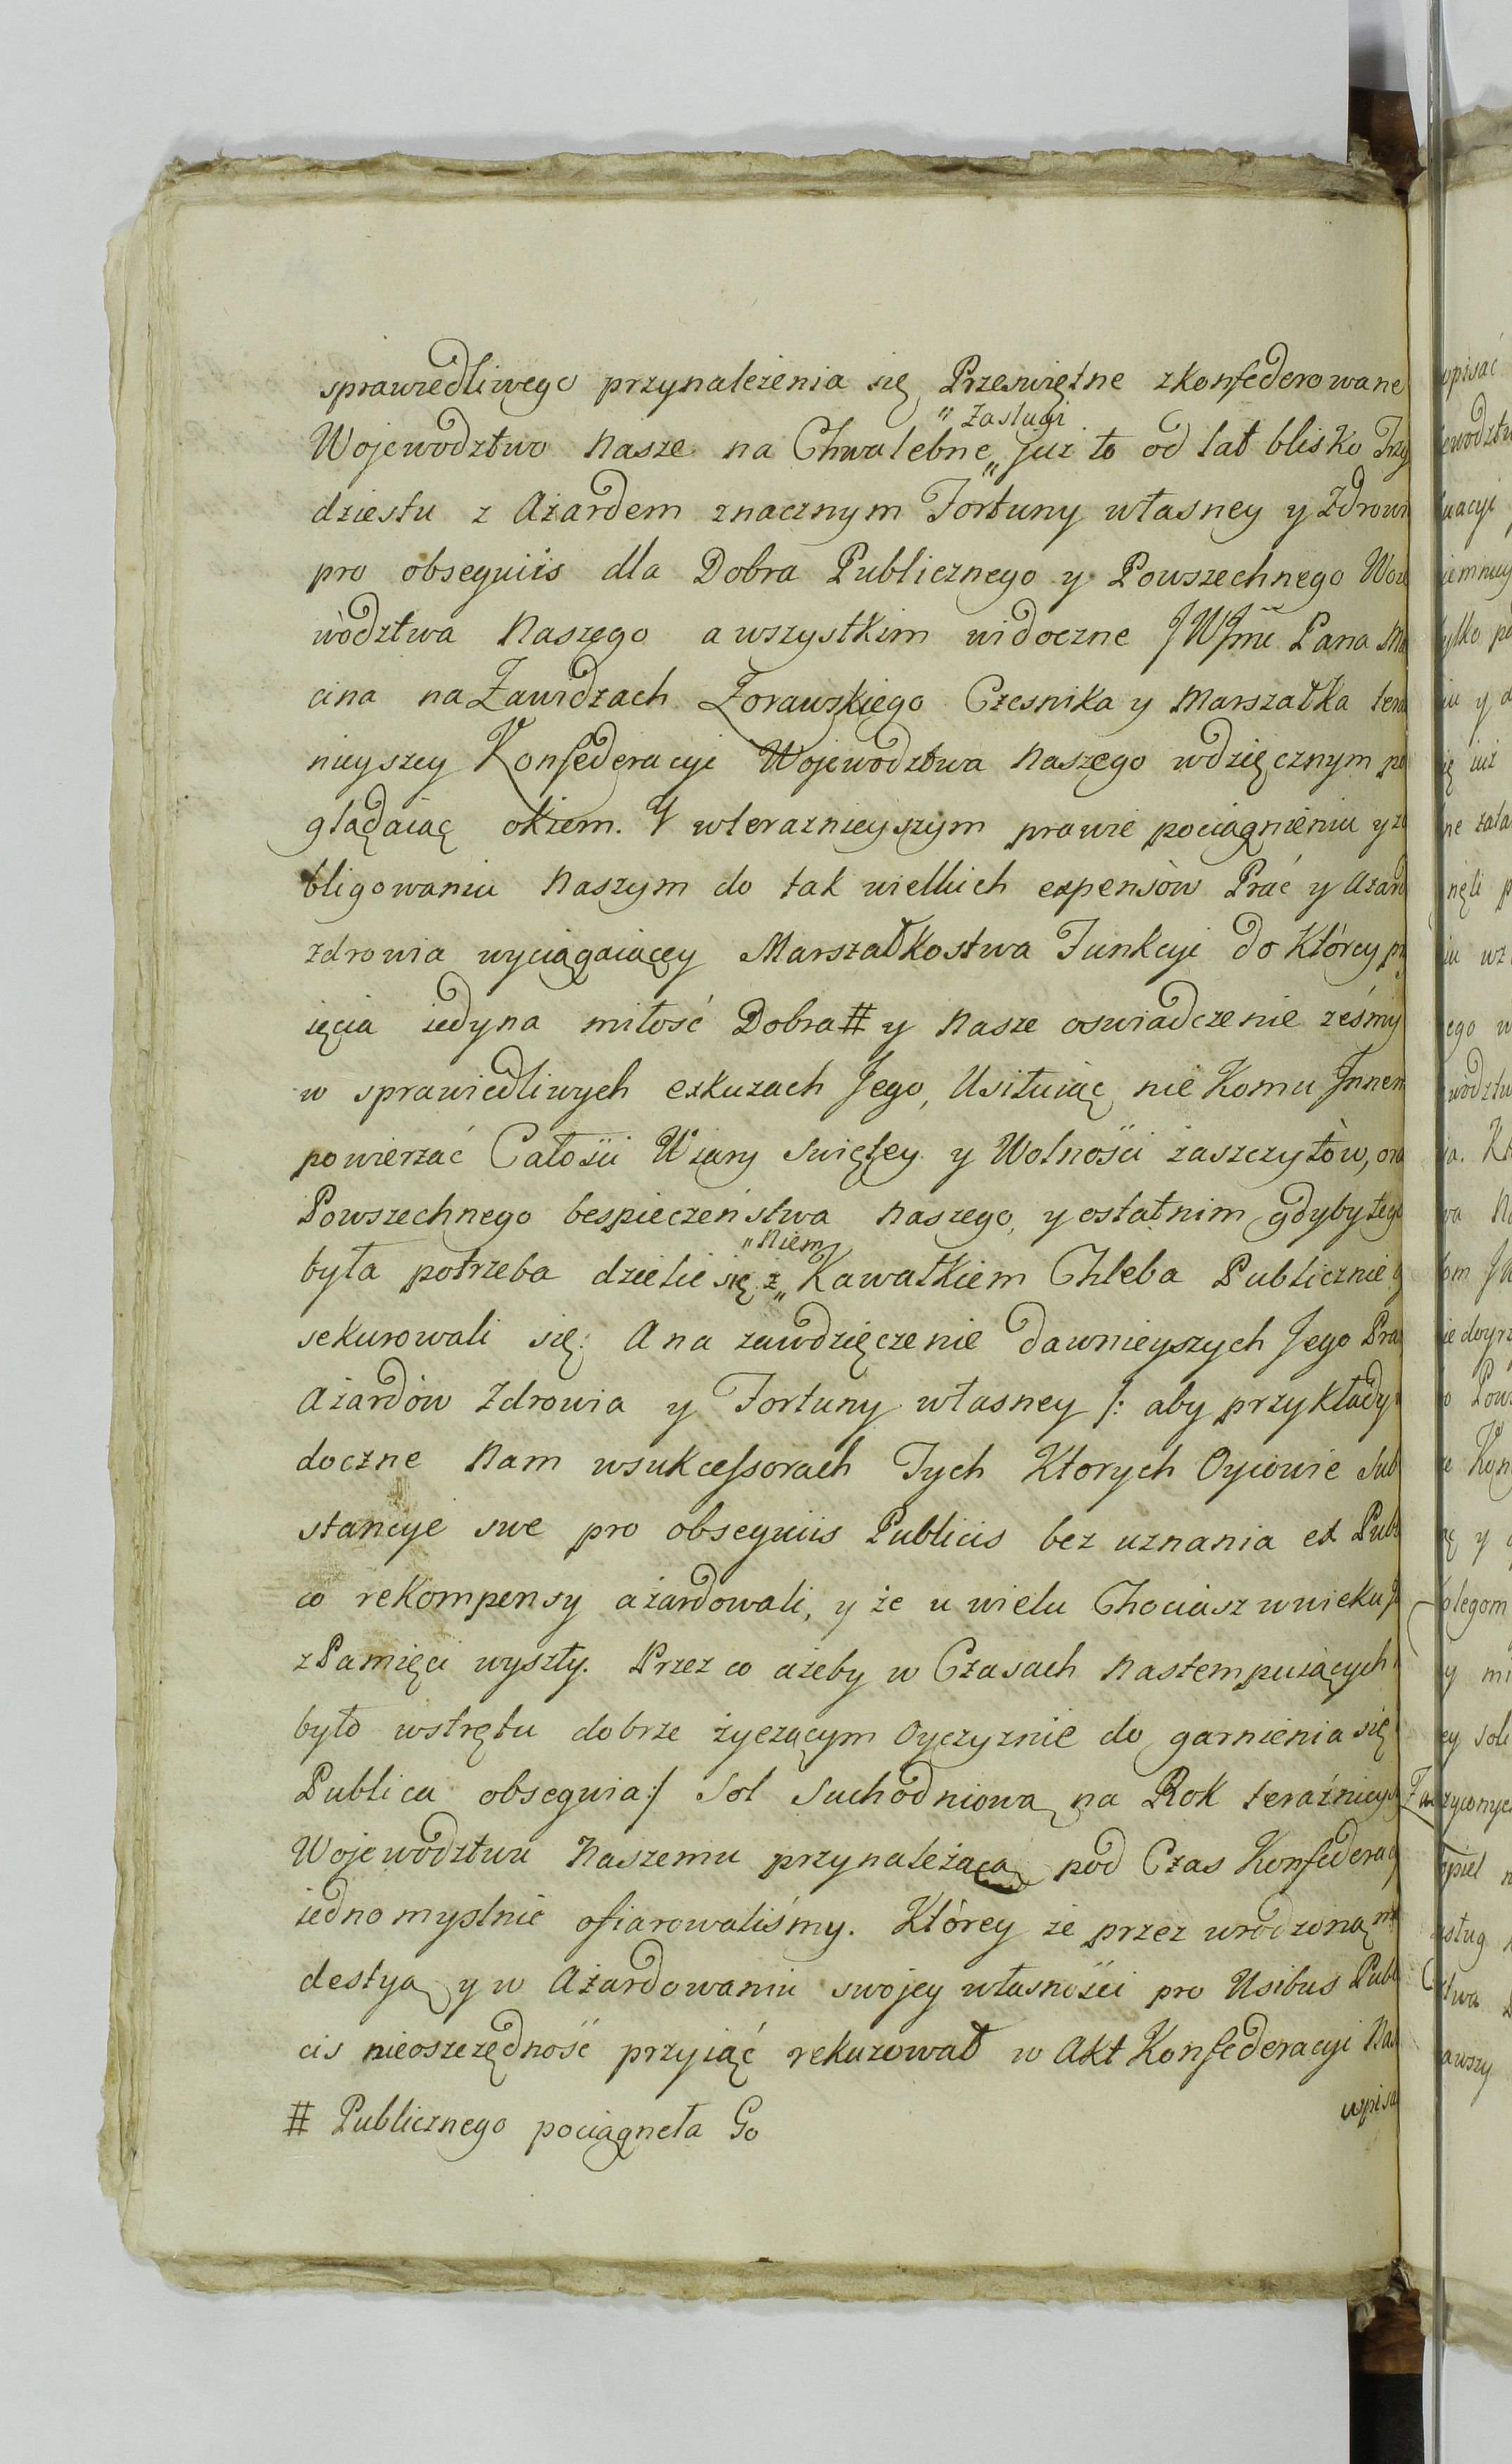 sprawiedliwego przynależenia się Przeświętne zkonfederowane
"Zasługi
Wojewodztwo Nasze na Chwalebne,, Już to od lat blisko Trzy
dziestu z Ażardem znacznym Fortuny własney y Zdrowi
pro obsequiis dla Dobra Publicznego y Powszechnego Woie
wòdztwa Naszego a wszystkim widoczne JWJmci Pana Ma
cina na Zawidzach Żorawskiego Czesnika y Marszałka tera
nieyszey Konfederacyi Wojewodztwa Naszego wdzięcznym po
glądaiąc okiem. Y wterazniejszym prawie pociągnieniu y zo
bligowaniu Naszym do tak wielkich expensòw Prać y Azard
zdrowia wyciągaiącey Marszałkostwa Funkcyi do Którey prz
ięcia iedyna miłość Dobra # y Nasze oswiadczenie żeśmy
w sprawiedliwych exkuzach Jego, Usiłuiąc nie Komu Innem
powierzać Całości Wiary Swiętey y Wolności zaszczytòw, ora
Powszechnego bespieczeństwa Naszego, y ostatnim gdyby tego
"Niem
była potrzeba dzielić się z,, Kawałkiem Chleba Publicznie
sekurowali się. A na zawdzięczenie dawnieyszych Jego Pra
Ażardòw Zdrowia y Fortuny własney /: aby przykłady
doczne Nam wsukcessorach Tych Ktorych Oycowie Sub
stancye swe pro obsequiis Publicis bez uznania ex Publi
co rekompensy ażardowali, y że u wielu Chociasz wwieku
z Pamięci wyszły. Przez co ażeby w Czasach Nastempuiących
było wstrętu dobrze życzącym Oyczyznie do garnienia się
Publica obsequia :/ Sol Suchodniową na Rok teraźnieysz
Wojewòdztwu Naszemu przynależącą pod Czas Konfederacy
iednomyslnie ofiarowaliśmy. Którey że przez wrodzoną mo
destyą y w Ażardowaniu swojey własności pro Usibus Publi
cis nieoszczędność przyiąć rekuzował w Akt Konfederacyi Nas
wpisa
# Publicznego pociągneła Go